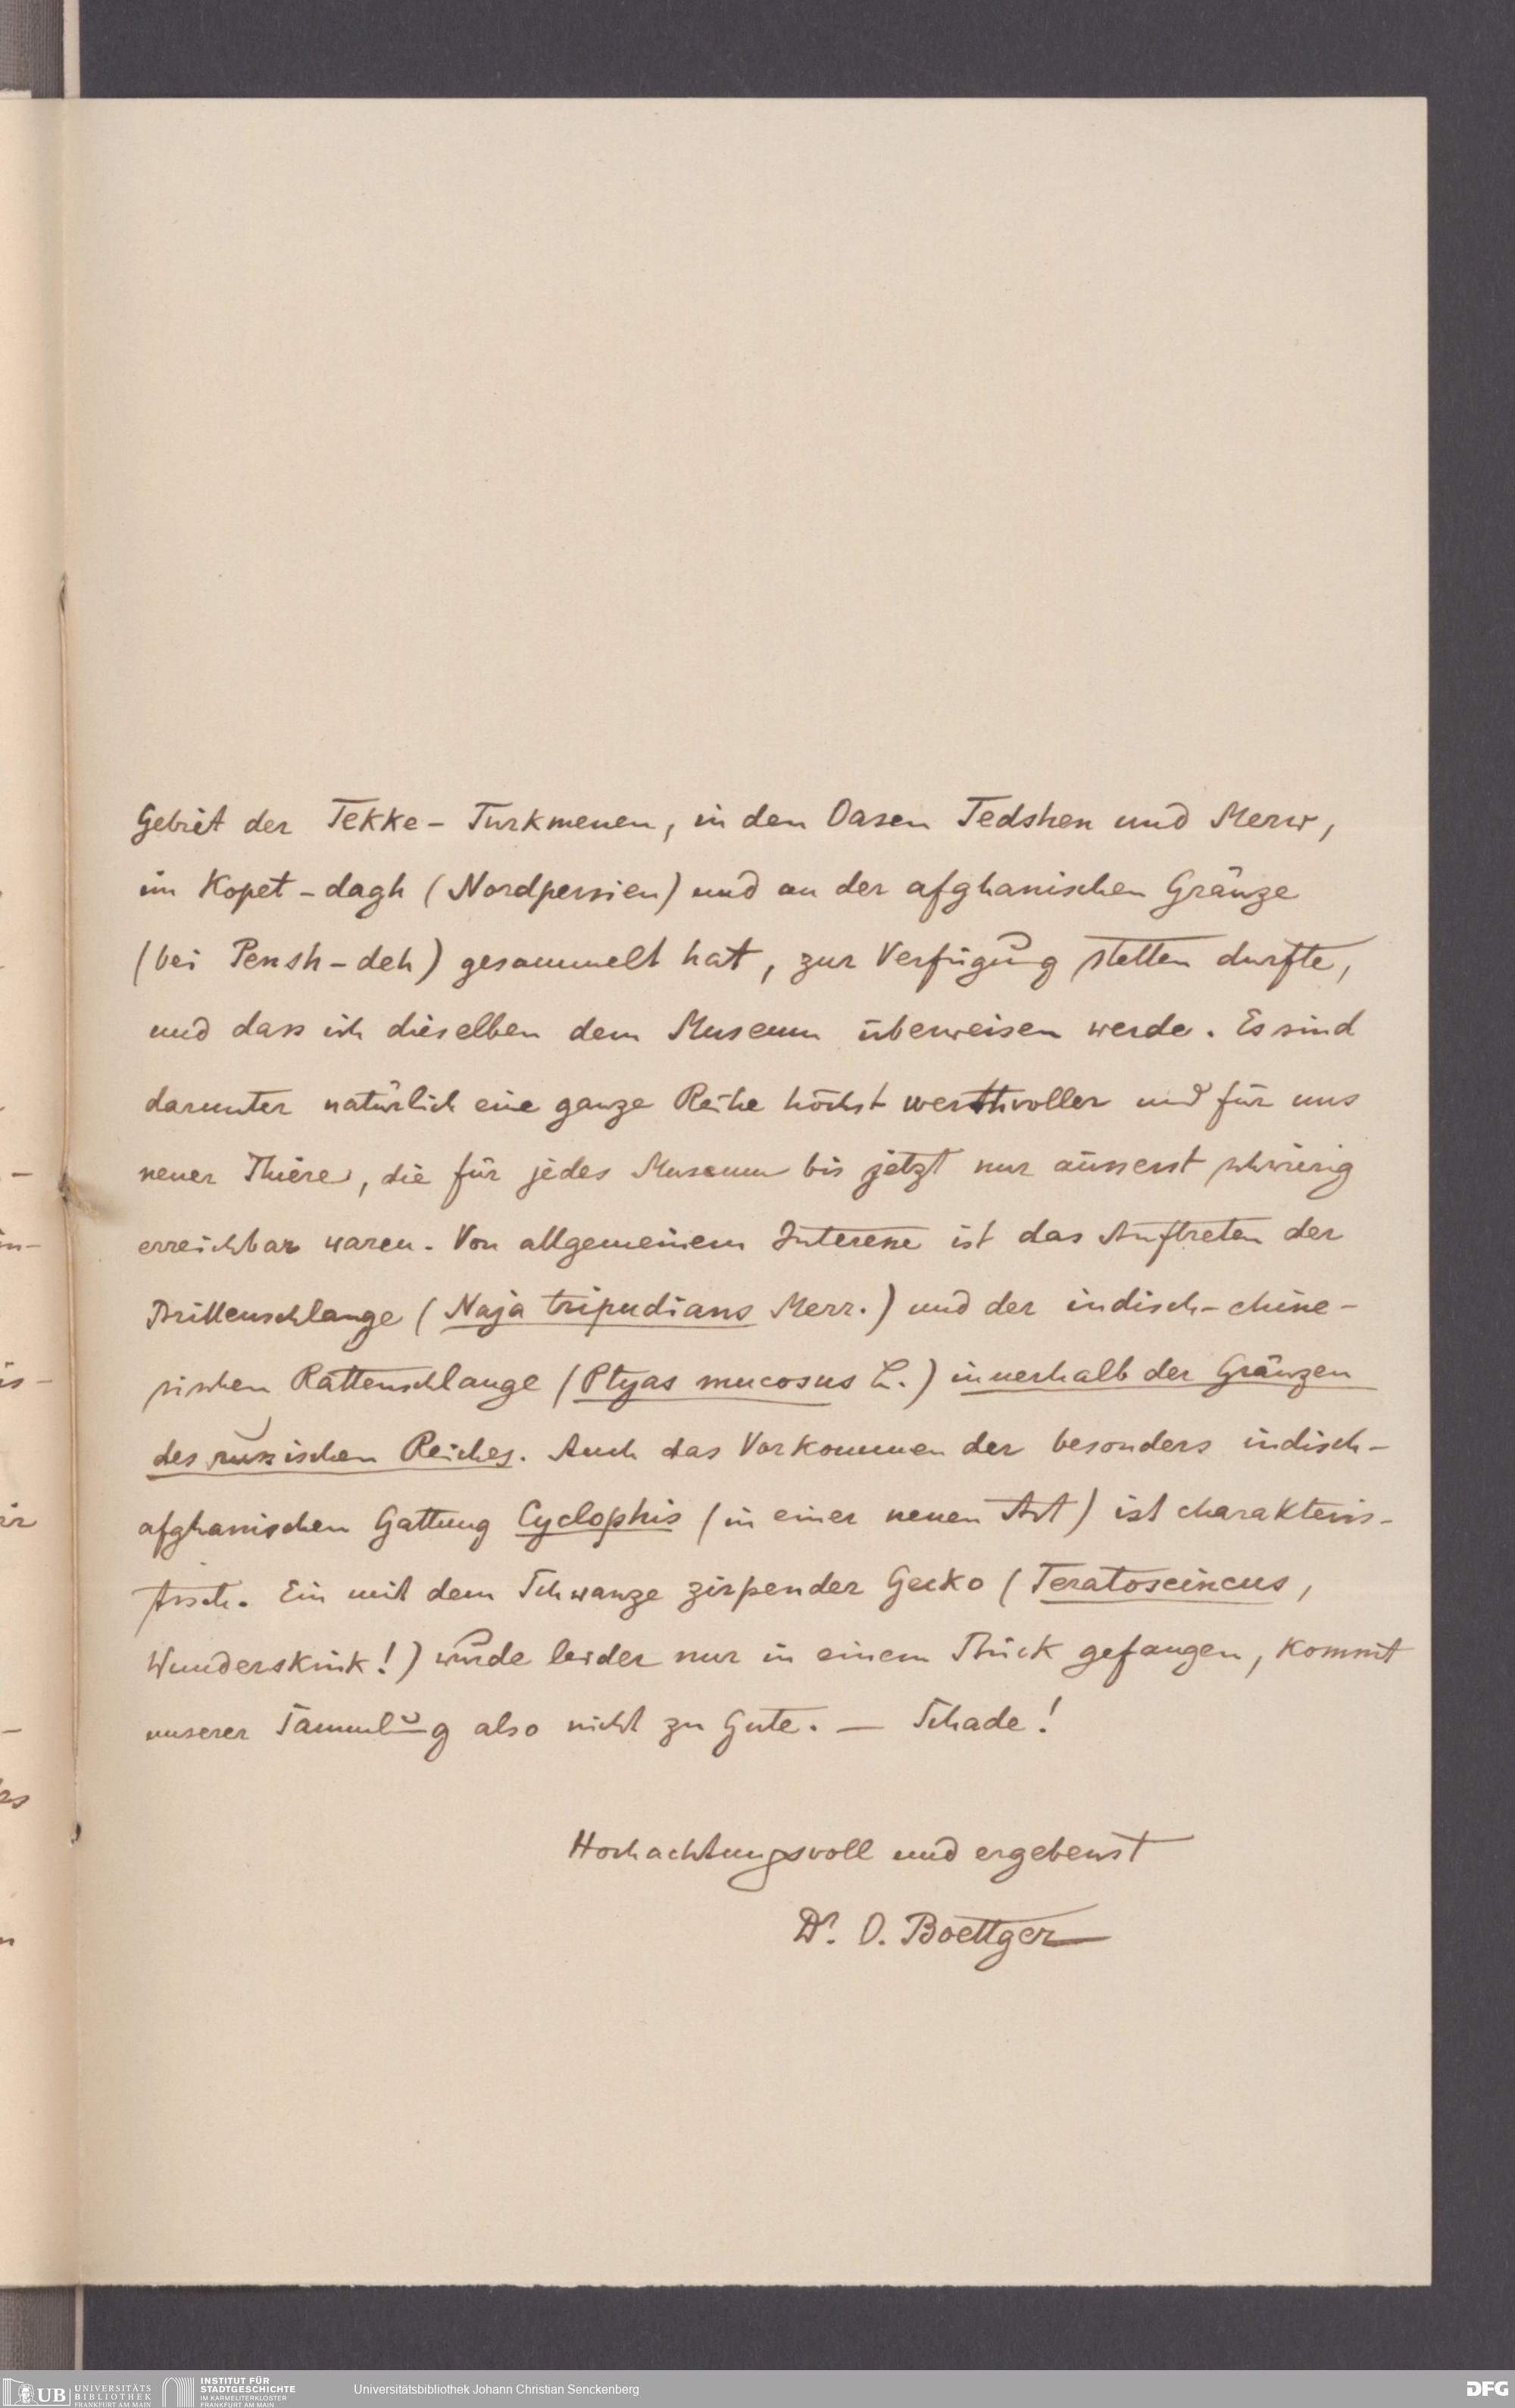 Gebiet der Tekke-Turkmenen, in den Oasen Tedshen und Merw,
im Kopet-dagh (Nordpersien) und an der afghanischen Gränze
(bei Pensh-deh) gesammelt hat, zur Verfügung stellen durfte,
und dass ich dieselben dem Museum überweisen werde. Es sind
darunter natürlich eine ganze Reihe höchst werthvoller und für uns
neuer Thiere, die für jedes Museum bis jetzt nur äusserst schwierig
erreichbar waren. Von allgemeinem Interesse ist das Auftreten der
Brillenschlange (Naja tripudians Merr.) und der indisch-chine-
sischen Rattenschlange (Ptyas mucosus L.) innerhalb der Gränzen
des russischen Reiches. Auch das Vorkommen der besonders indisch-
afghanischen Gattung Cyclophis (in einer neuen Art) ist charakteris-
tisch. Ein mit dem Schwanze zirpender Gecko (Teratoscincus,
Wunderskink!) wurde leider nur in einem Stück gefangen, kommt
unserer Sammlung also nicht zu Gute. — Schade!
Hochachtungsvoll und ergebenst
Dr. O. Boettger
UB UNIVERSITÄTS
BIBLIOTHEK
FRANKFURT AM MAIN
INSTITUT FÜR
STADTGESCHICHTE
IM KARMELITERKLOSTER
FRANKFURT AM MAIN
Universitätsbibliothek Johann Christian Senckenberg
DFG